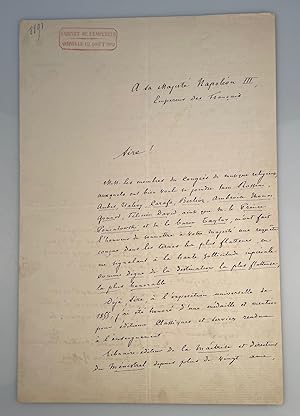 CABINET DE L'EMPEREUR
A Sa Majesté Napoléon III,
Empereur des Français
Sire!
M.M. les membres du Congrès de musique religieuse,
auxquels ont bien voulu se joindre MM. Rossini,
Auber, Halévy, Carafa, Berlioz, Ambroise Thomas,
Gounod, Félicien David ainsi que le Prince
Poniatowski et le Baron Taylor, m'ont fait
l'honneur de remettre à votre Majesté une requête
conçue dans les termes les plus flatteurs, en
me signalant à la haute sollicitude impériale
comme digne de la distinction la plus flatteuse,
la plus honorable
Déjà Sire, à l'exposition universelle de
1855, j'ai été honoré d'une médaille et mention
pour éditions classiques et services rendus
à l'enseignement.
Libraire éditeur de la Maîtrise et directeur
du Ménestrel depuis plus de vingt ans,